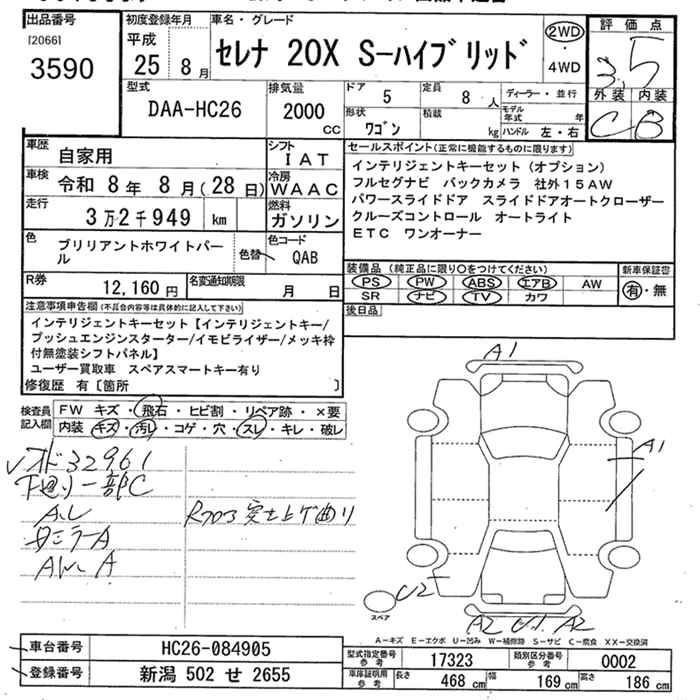 出品番号
[2066]
3590
初度登録年月
平成
25年8月
車名・グレード
セレナ 20X S-ハイブリッド
2WD
・
4WD
評価点
3.5
外装 内装
C B
型式
DAA-HC26
排気量
2000
CC
ドア
5
定員
8 人
ディーラー・並行
形状
ワゴン
積載
kg
モデル年式 年
ハンドル 左・右
車歴
自家用
シフト
IAT
車検
令和 8年 8月(28日)
冷房
WAAC
走行
3万2千949 km
燃料
ガソリン
色
ブリリアントホワイトパール
色替
色コード
QAB
R券
12,160円
名変通知期限
月 日
セールスポイント(正常に機能するものに限ります)
インテリジェントキーセット(オプション)
フルセグナビ バックカメラ 社外15AW
パワースライドドア スライドドアオートクローザー
クルーズコントロール オートライト
ETC ワンオーナー
装備品(純正品に限り○をつけてください)
PS PW ABS エアB AW
SR ナビ TV カワ
新車保証書
有・無
後日品
注意事項申告欄(不具合内容等は具体的に記入して下さい)
インテリジェントキーセット【インテリジェントキー/
プッシュエンジンスターター/イモビライザー/メッキ枠
付無塗装シフトパネル】
ユーザー買取車 スペアスマートキー有り
修復歴 有〔箇所 〕
検査員記入欄
FW キズ・飛石・ヒビ割・リペア跡・×要
内装 キズ・汚レ・コゲ・穴・スレ・キレ・破レ
32961
下廻り一部C
A.L
ミラーA
AW A
A1
A1
U2
A2 U1 A2
スペア
A-キズ E-エクボ U-凹み W-補修跡 S-サビ C-腐食 XX-交換済
車台番号
HC26-084905
登録番号
新潟 502 せ 2655
型式指定番号
参考
17323
類別区分番号
参考
0002
車庫証明用
参考
長さ
468 cm
幅
169 cm
高さ
186 cm